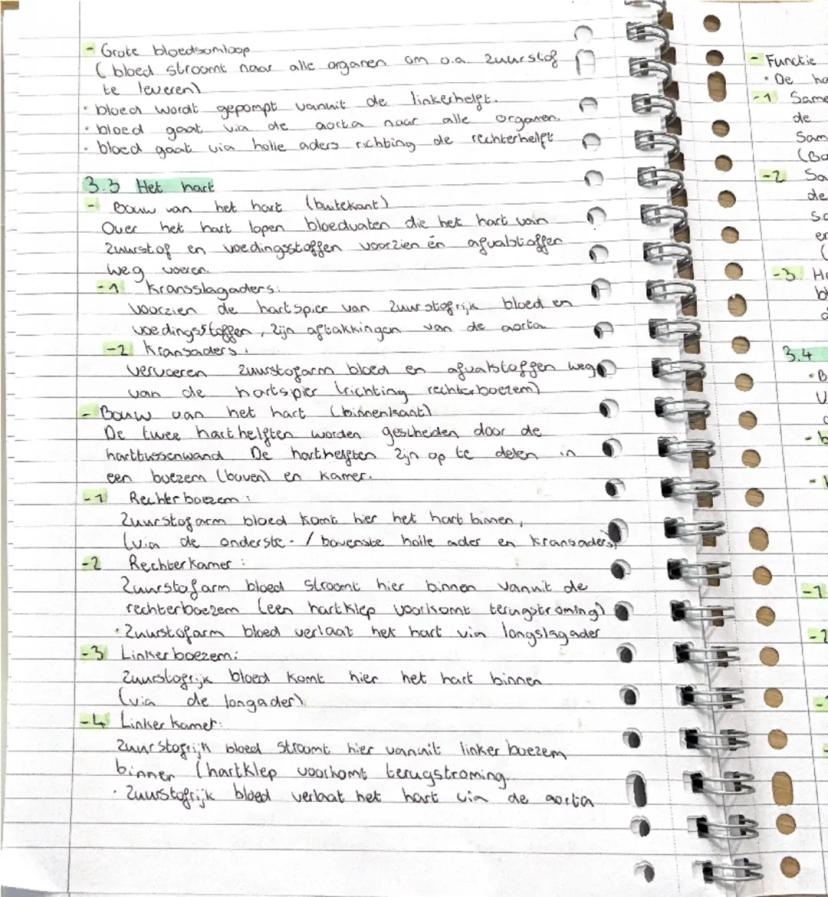 - Grote bloedsomloop
( bloed stroomt naar alle organen om o.a. zuurstof
te leveren)
• bloed wordt gepompt vanuit de linkerhelft.
• bloed gaat via de aorta naar alle organen.
• bloed gaat via holle aders richting de rechterhelft
3.3 Het hart
- Bouw van het hart (buitekant)
Over het hart lopen bloedvaten die het hart van
zuurstof en voedingsstoffen voorzien én afvalstoffen
weg voeren.
-1 Kransslagaders:
voorzien de hartspier van zuurstofrijk bloed en
voedingsstoffen, zijn aftakkingen van de aorta
-2 Kransaders:
vervoeren zuurstofarm bloed en afvalstoffen weg
van de hartspier (richting rechterboezem)
- Bouw van het hart (binnenkant)
De twee harthelften worden gescheden door de
harttussenwand. De harthelften zijn op te delen in
een boezem (boven) en kamer.
-1 Rechterboezem:
Zuurstofarm bloed komt hier het hart binnen,
(via de onderste- / bovenste holle ader en kransaders)
-2 Rechterkamer:
Zuurstofarm bloed stroomt hier binnen vanuit de
rechterboezem (een hartklep voorkomt terugstroming)
• Zuurstofarm bloed verlaat het hart via longslagader
-3 Linkerboezem:
Zuurstofrijk bloed komt hier het hart binnen
(via de longader)
-4 Linkerkamer:
Zuurstofrijk bloed stroomt hier vanuit linker boezem
binnen (hartklep voorkomt terugstroming.
• Zuurstofrijk bloed verlaat het hart via de aorta
- Functie
• De
-1
de
-2
de
-3
3.4
-1
-2